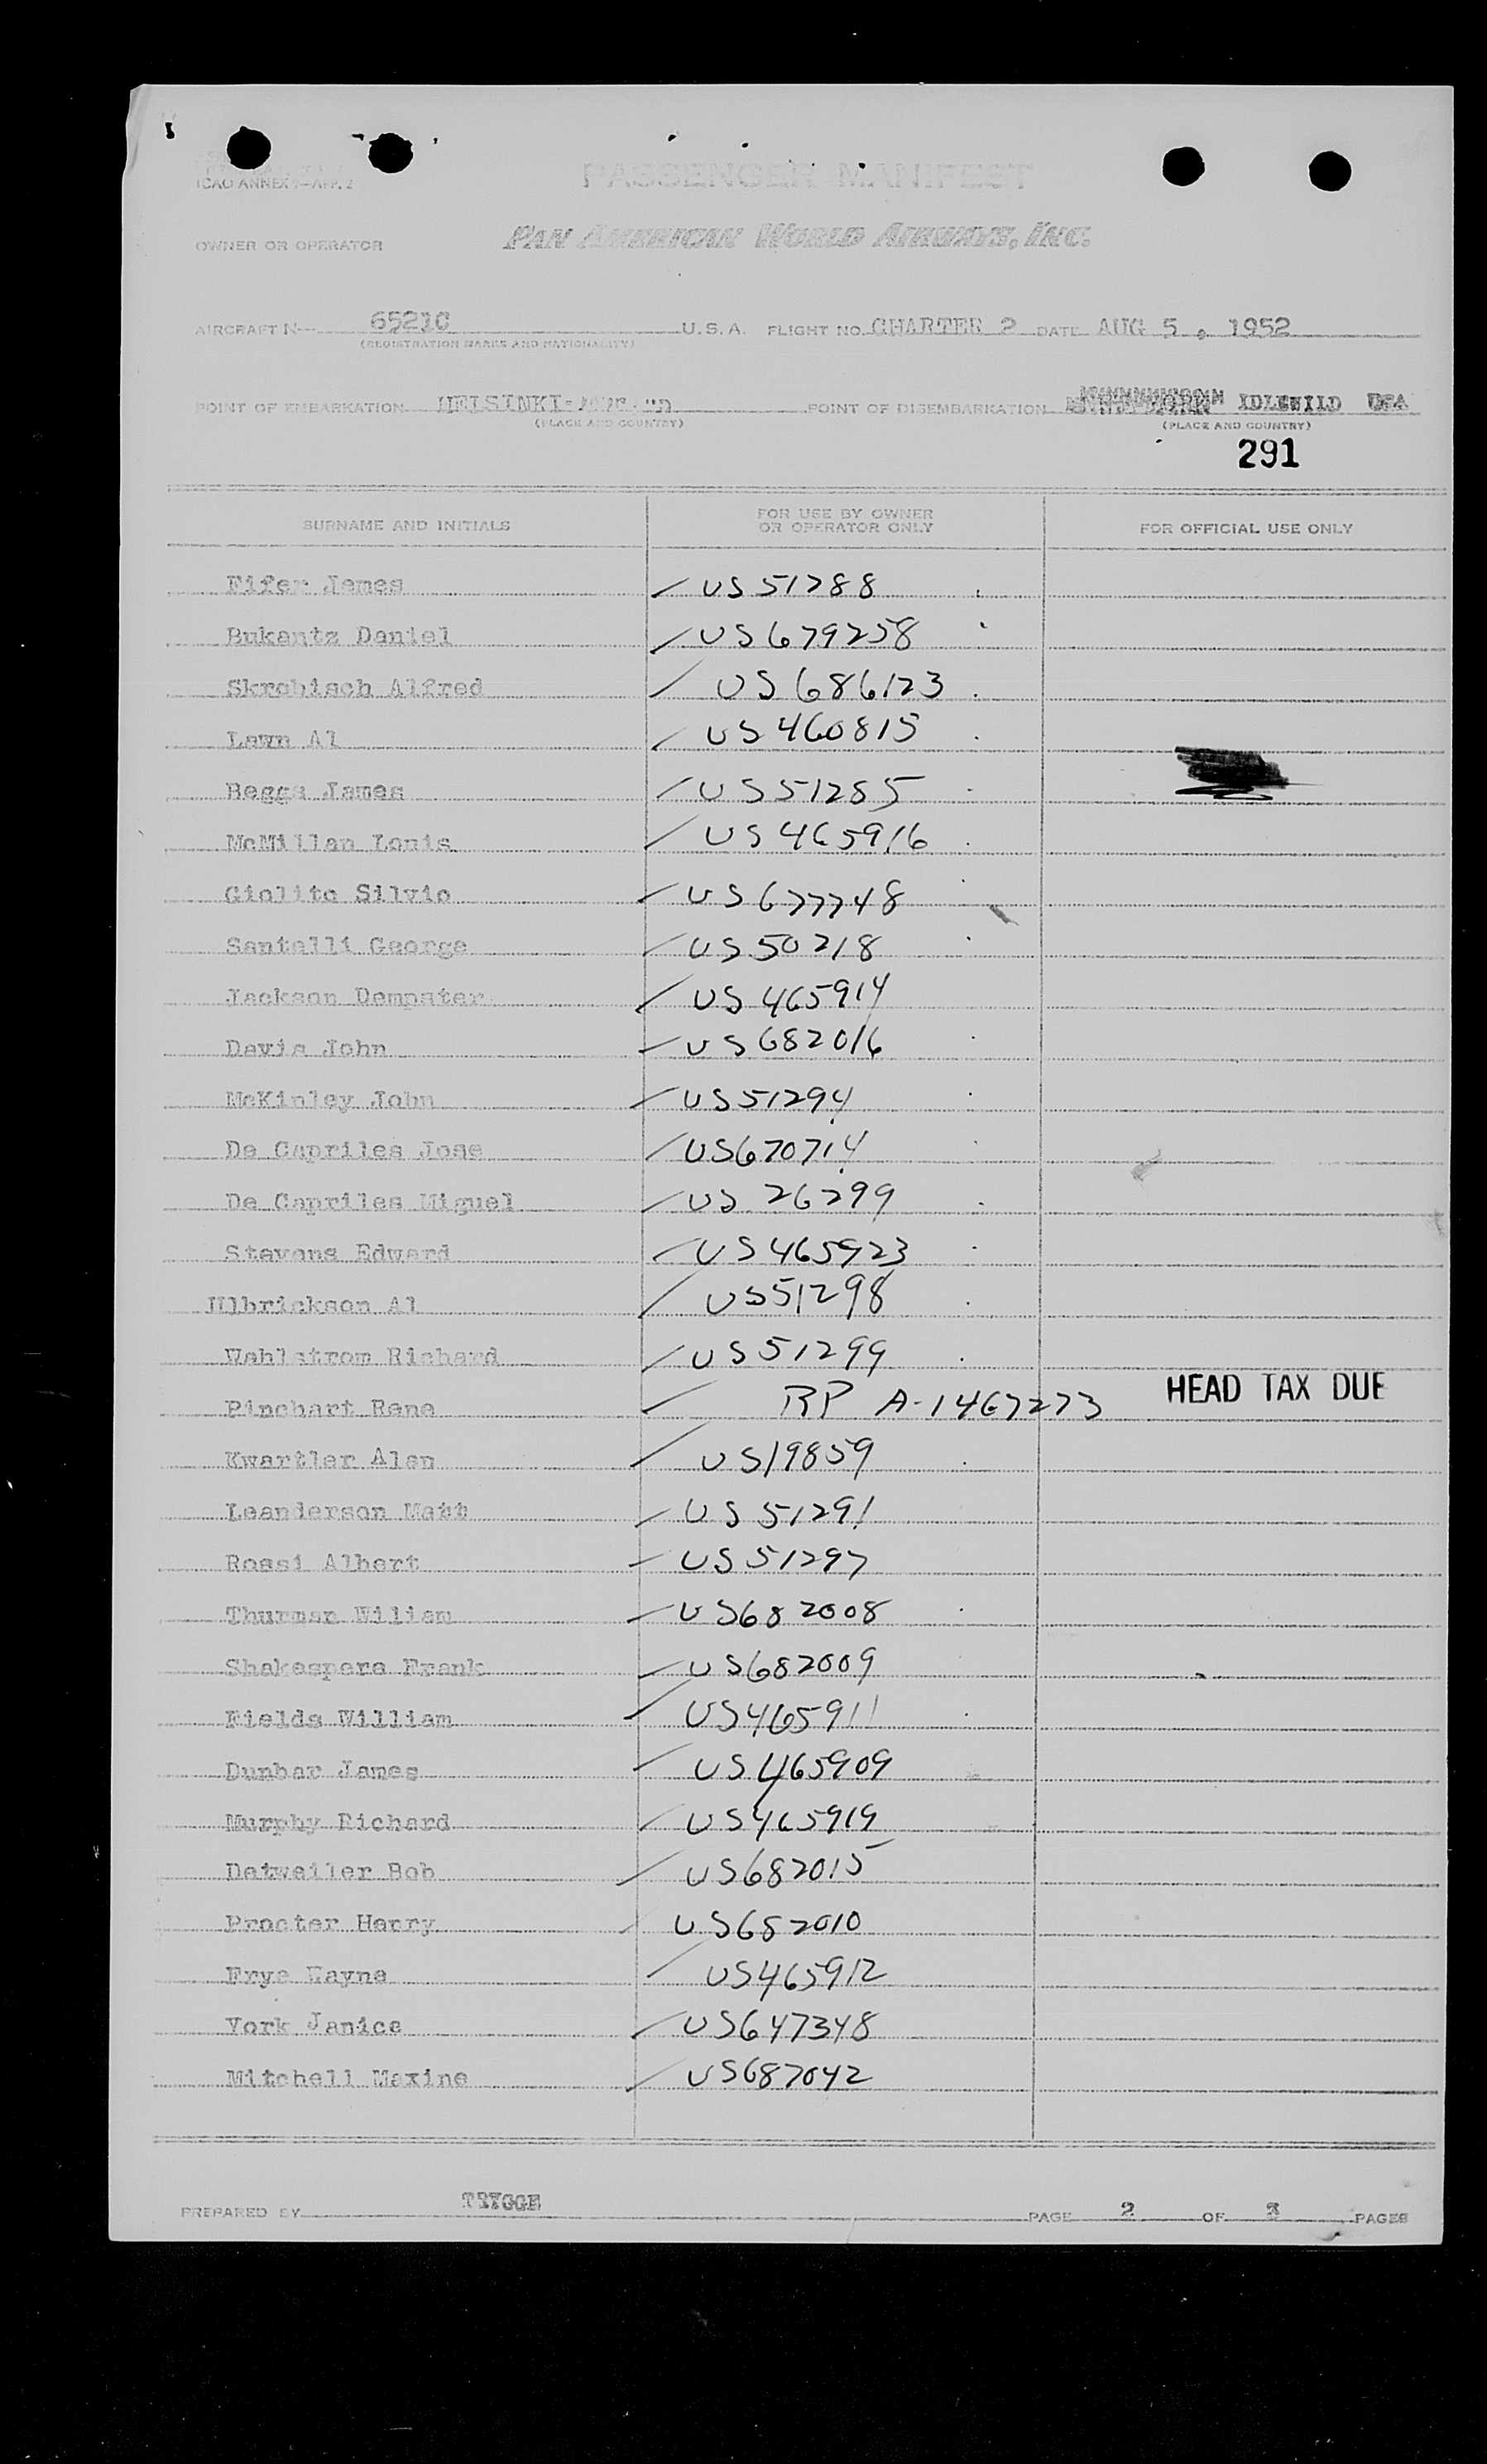 ICAO ANNEX 9—APP. 2
PASSENGER MANIFEST
OWNER OR OPERATOR PAN AMERICAN WORLD AIRWAYS, INC.
AIRCRAFT N— 6521C U.S.A. FLIGHT NO. CHARTER 2 DATE AUG 5, 1952
(REGISTRATION MARKS AND NATIONALITY)
POINT OF EMBARKATION HELSINKI- POINT OF DISEMBARKATION IDLEWILD USA
(PLACE AND COUNTRY) (PLACE AND COUNTRY)
291
SURNAME AND INITIALS FOR USE BY OWNER OR OPERATOR ONLY FOR OFFICIAL USE ONLY
Fifer James US 51288
Bukantz Daniel US 679258
Skrobisch Alfred US 686123
Lawn Al US 460815
Beggs James US 51285
McMillan Louis US 465916
Giolito Silvio US 677748
Santelli George US 50218
Jackson Dempster US 465914
Davis John US 682016
McKinley John US 51294
De Capriles Jose US 670714
De Capriles Miguel US 26299
Stevens Edward US 465923
Ulbrickson Al US 51298
Wahlstrom Richard US 51299
Pinchart Rene RP A-1467273 HEAD TAX DUE
Kwartler Alan US 19859
Leanderson Matt US 51291
Rossi Albert US 51297
Thurman Wiliam US 682008
Shakespere Frank US 682009
Fields William US 465911
Dunbar James US 465909
Murphy Richard US 465919
Detweiler Bob US 682015
Procter Henry US 682010
Frye Wayne US 465912
York Janice US 647348
Mitchell Maxine US 687042
PREPARED BY TRYGGE PAGE 2 OF 3 PAGES